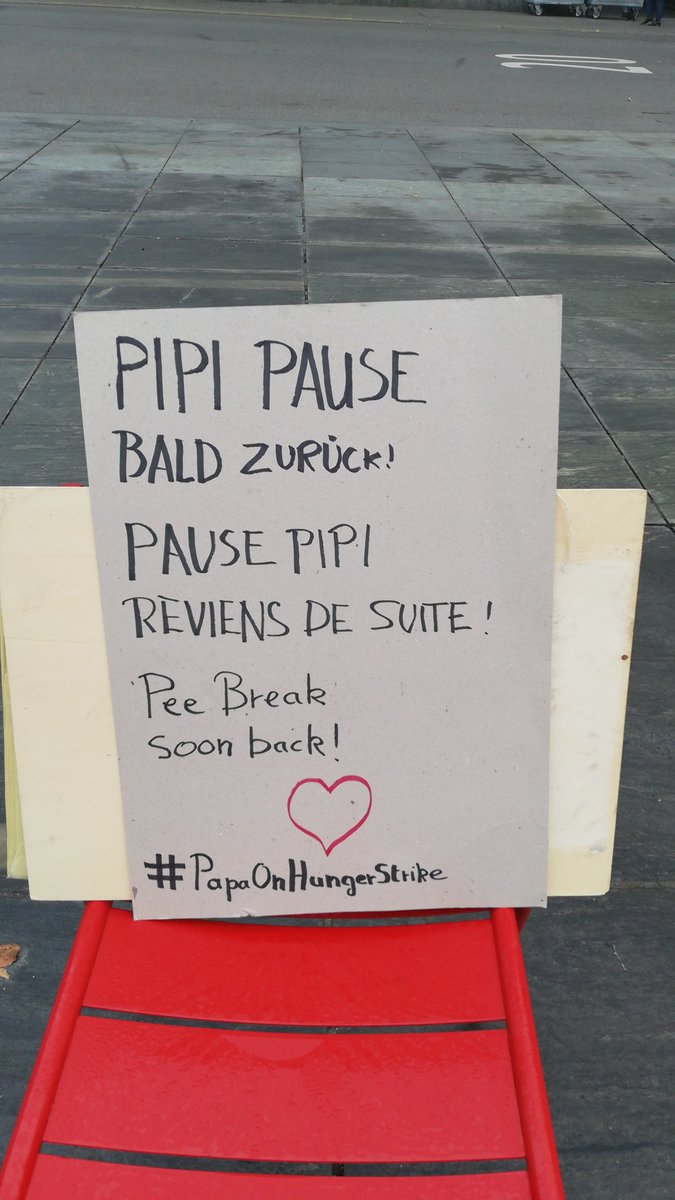 PIPI PAUSE
BALD ZURÜCK!
PAUSE PIPI
RÈVIENS DE SUITE!
Pee Break
soon back!
#PapaOnHungerStrike